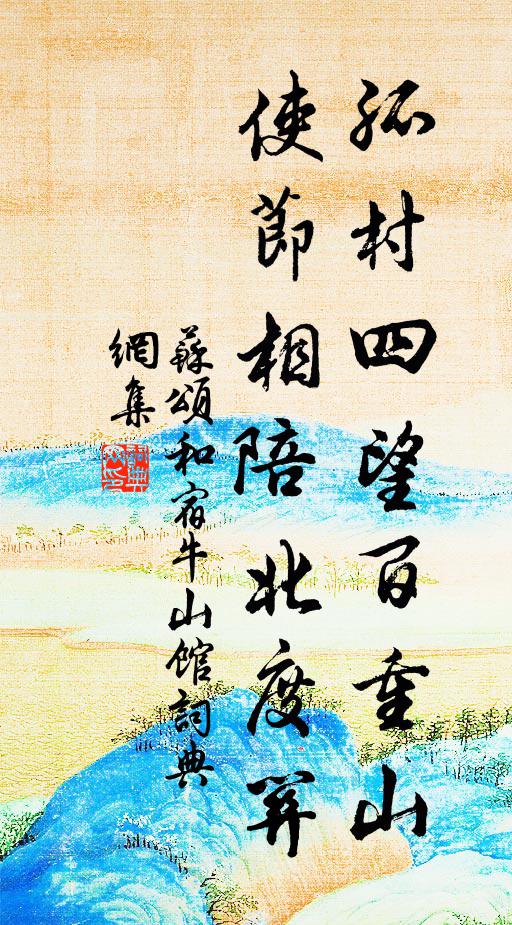 孤村四望百重山
使節相陪北度關
蘇頌和宿牛山館詞典
網集